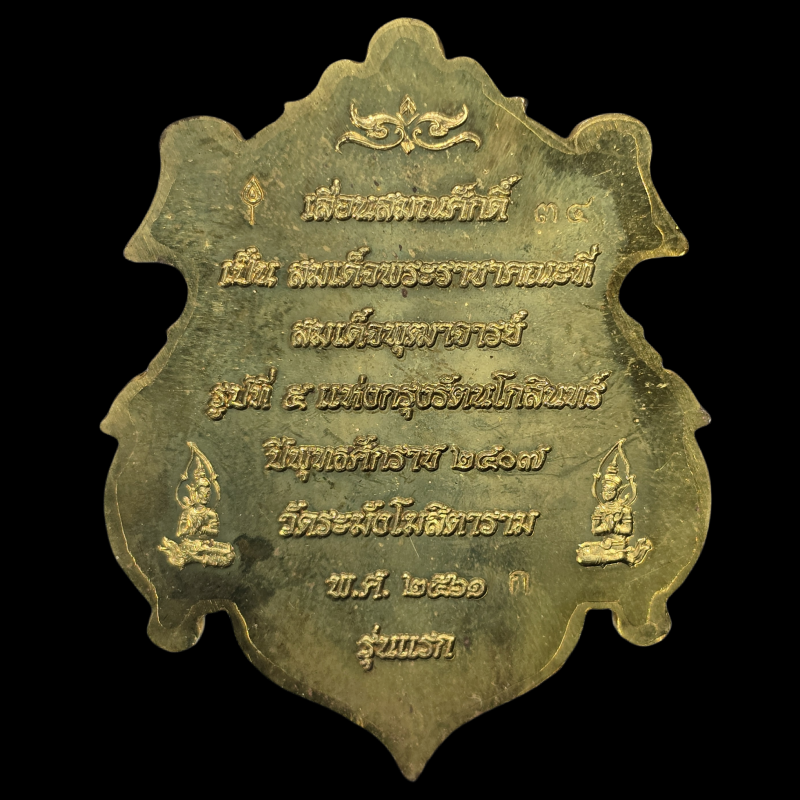 เลื่อนสมณศักดิ์ ๓๔
เป็น สมเด็จพระราชาคณะที่
สมเด็จพุฒาจารย์
รูปที่ ๕ แห่งกรุงรัตนโกสินทร์
ปีพุทธศักราช ๒๔๐๗
วัดระฆังโฆสิตาราม
พ.ศ. ๒๕๖๑ ก
รุ่นแรก